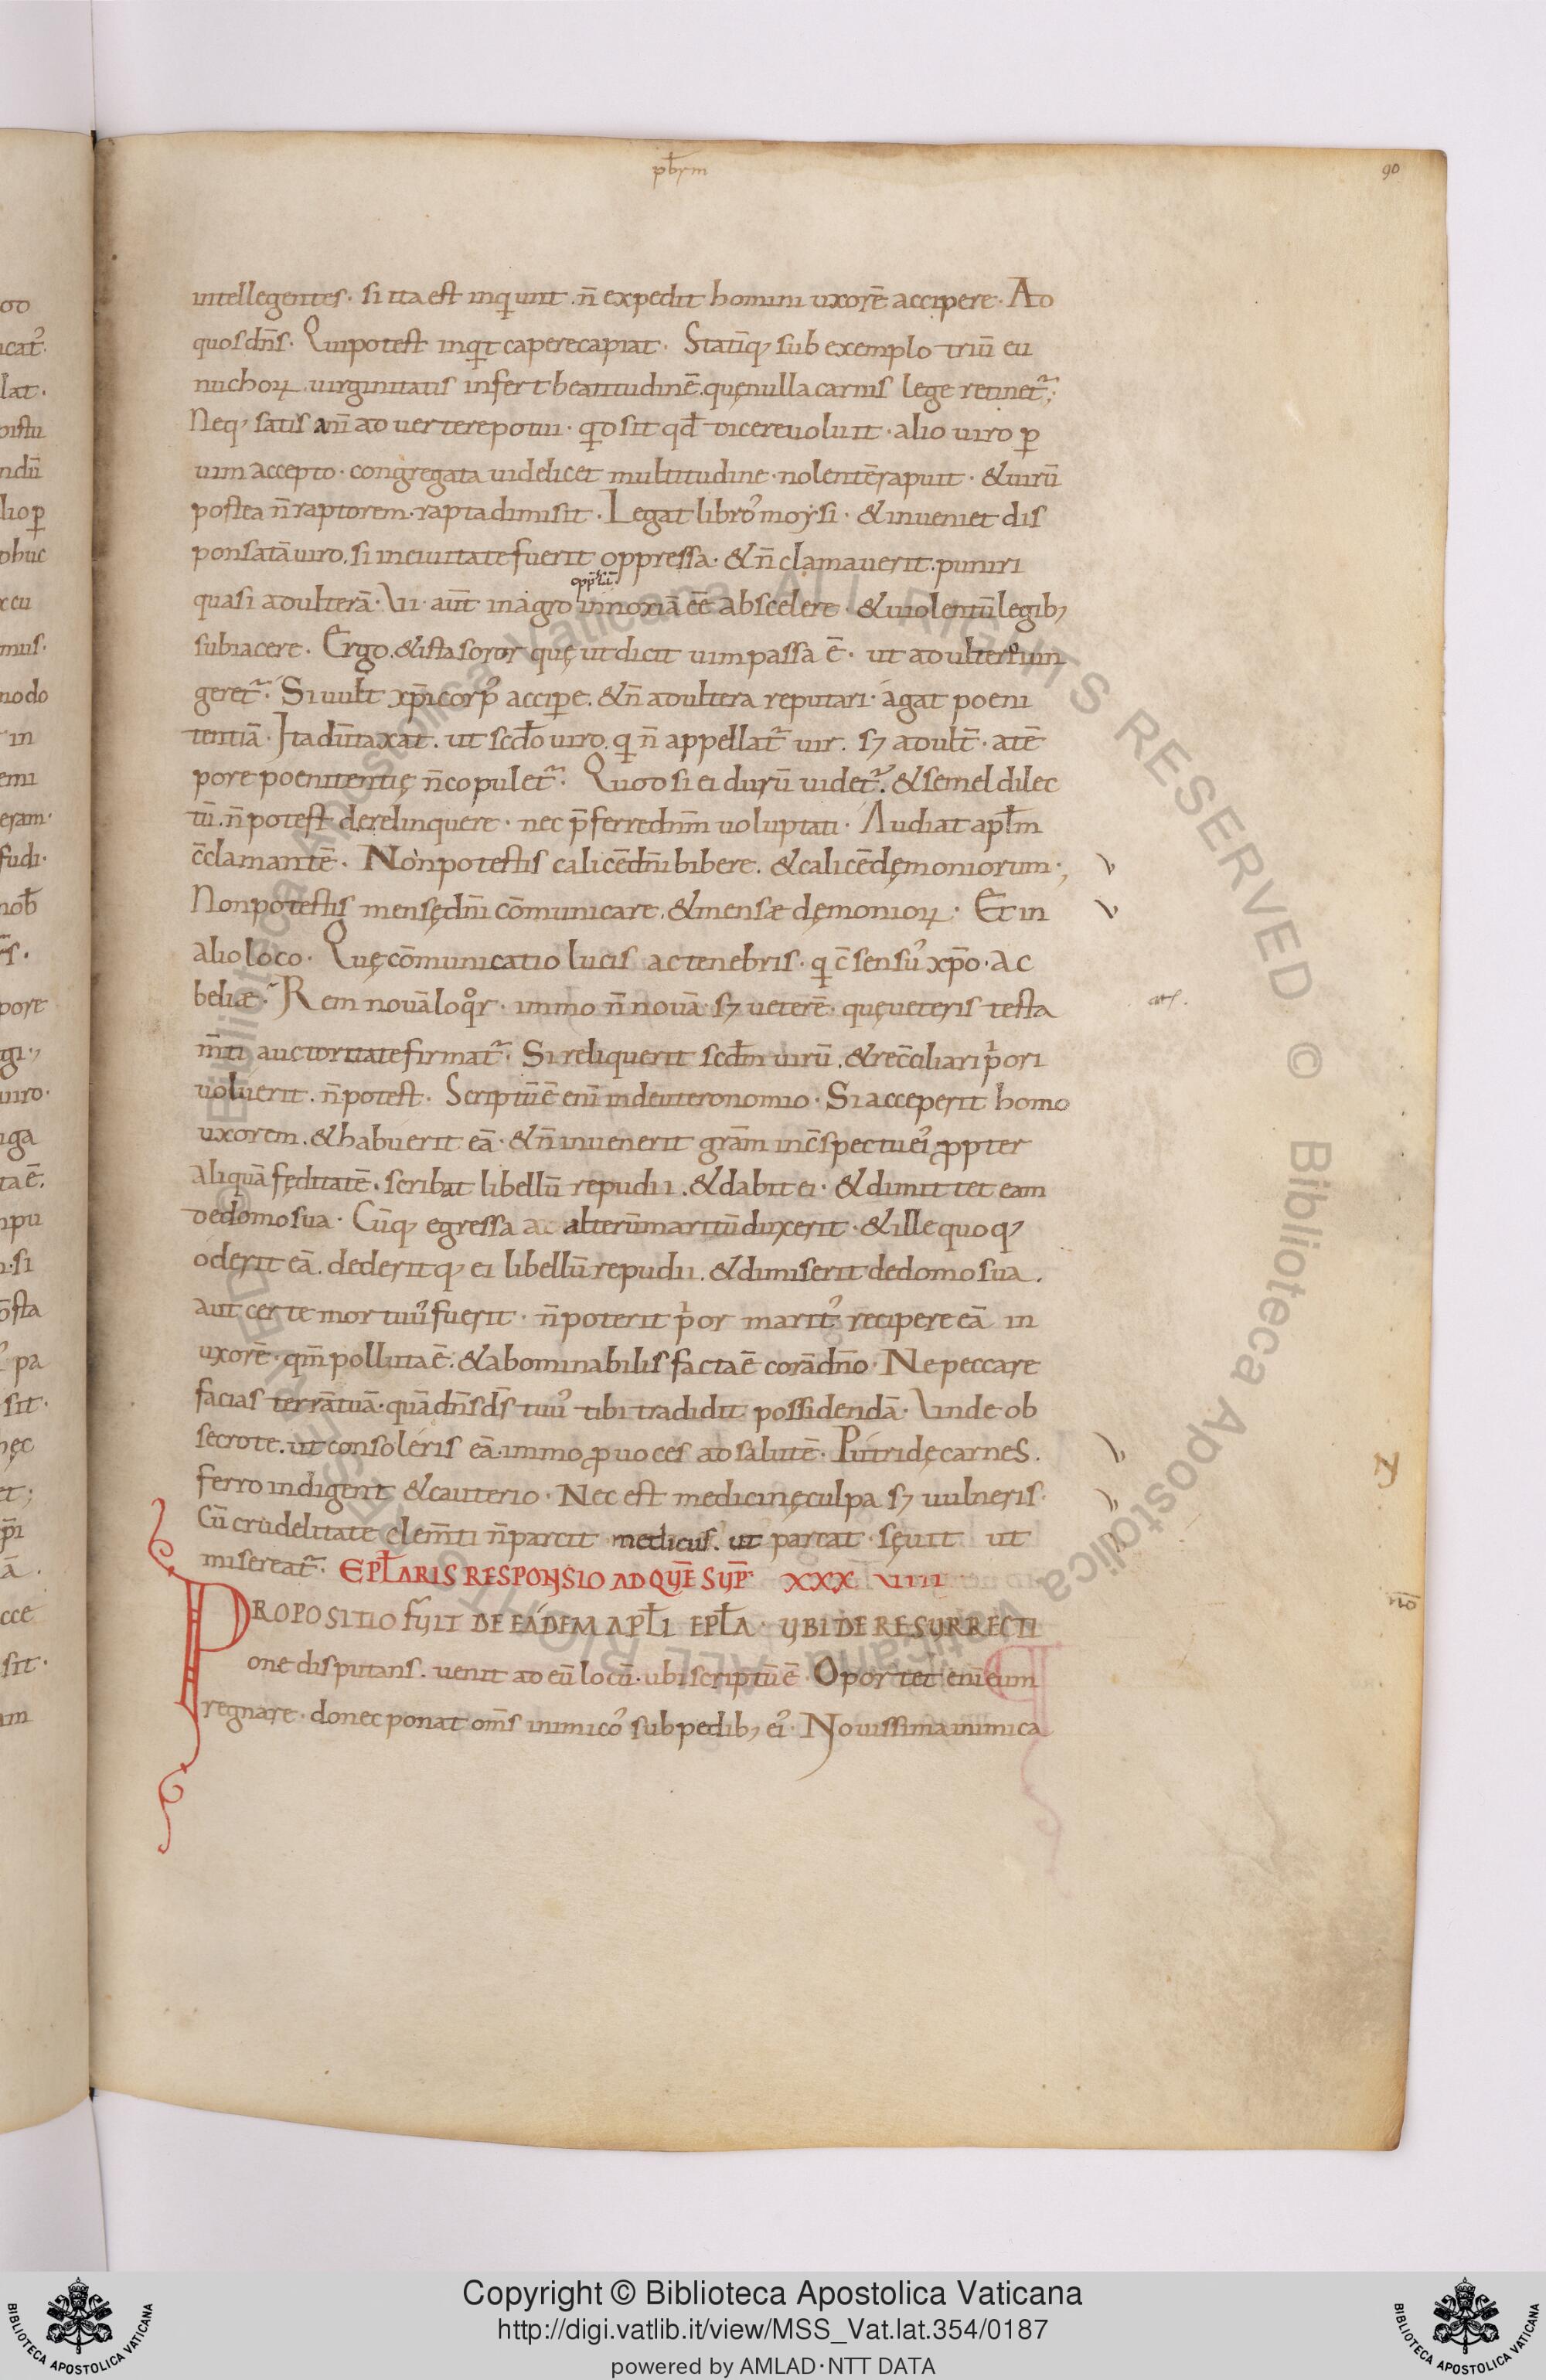 pb̅rm
90
intellegentes· si ita est inqiunt .n̅ expedit homini uxore̅ accipere· Ad
quos dn̅s· Qui potest inqit capere capiat· Statiq; sub exemplo triu̅ eu
nuchoꝝ uirginitatis infert beatitudine̅. quę nulla carnis lege retinet᷑;
Neq; satis ani̅ aduertere potui· qid sit qd̅ dicere uoluit· alio uiro ꝑ
uim accepto· congregata uidelicet multitudine· nolente̅ rapuit· & uiru̅
postea n̅ raptorem· rapta dimisit· Legat libro᾽ moysi· & inueniet dis
ponsata̅ uiro. si in ciuitate fuerit oppressa· & n̅ clamauerit. puniri
quasi adultera̅· Si aut̅ in agro innoxia̅ ee̅ ab scelere· & uiolentu̅ legib;
subiacere· Ergo. & ista soror quę ut dicit uim passa e̅· ut adulter sui
geret᷑· Si uult xp̅i corp᾽ accipe. & n̅ adultera reputari· agat poeni
tentia̅· Ita du̅taxat. ut scd̅o uiro. qi n̅ appellat᷑ uir. sꝫ adult̅· a te̅
pore poenitentię n̅ copulet᷑· Quod si ei duru̅ uidet᷑. & semel dilec
tu̅. n̅ potest derelinquere· nec p̅ferre dn̅m uoluptati· Audiat apl̅m
c̅clamante̅· Non potestis calice̅ dn̅i bibere. & calice̅ dęmoniorum·;
Non potestis mensę dn̅i co̅municare. & mensæ dęmonioꝝ· Et in
alio loco· Quę co̅municatio lucis ac tenebris· qi c̅sensu᾽ xp̅o· ac
beliæ· Rem noua̅ loqͦr· immo n̅ noua̅ sꝫ uetere̅· quę ueteris testa
m̅ti auctoritate firmat᷑· Si reliquerit scd̅m uiru̅. & rec̅ciliari pͥori
uoluerit. n̅ potest· Scriptu̅ e̅ eni̅ in deuteronomio· Si acceperit homo
uxorem. & habuerit ea̅· & n̅ inuenerit gra̅m in c̅spectu ei᾽ ꝓpter
aliqua̅ fęditate̅. scribat libellu̅ repudii. & dabit ei· & dimittet eam
de domo sua· Cu̅q; egressa ac alteru̅ maritu̅ duxerit· & ille quoq;
oderit ea̅. dederitq; ei libellu̅ repudii. & dimiserit de domo sua.
aut certe mortuu᾽ fuerit· n̅ poterit pͥor marit᾽ recipere ea̅ in
uxore̅· qm̅ polluta e̅. & abominabilis facta e̅ cora̅ dn̅o· Ne peccare
facias terra̅ tua̅· qua̅ dn̅s ds̅ tuu᾽ tibi tradidit possidenda̅· Unde ob
secro te. ut consoleris ea̅. immo ꝓuoces ad salute̅· Putridę carnes.
ferro indigent & cauterio· Nec est medicinę culpa sꝫ uulneris·
Cu̅ crudelitate clem̅ti n̅ parcit medicus. ut parcat· sęuit ut
misereat᷑· EPL̅ARIS RESPONSIO AD QVE̅ SVP̅· XXX VIIII
PROPOSITIO FVIT DE EADEM APL̅I EPL̅A· VBI DE RESVRRECTI
one disputans. uenit ad eu̅ locu̅· ubi scriptu̅ e̅· Oportet eni̅ eum
regnare· donec ponat om̅s inimico᾽ sub pedib; ei᾽· Nouissima inimica
Copyright © Biblioteca Apostolica Vaticana
http://digi.vatlib.it/view/MSS_Vat.lat.354/0187
powered by AMLAD·NTT DATA
BIBLIOTECA APOSTOLICA VATICANA
BIBLIOTECA APOSTOLICA VATICANA